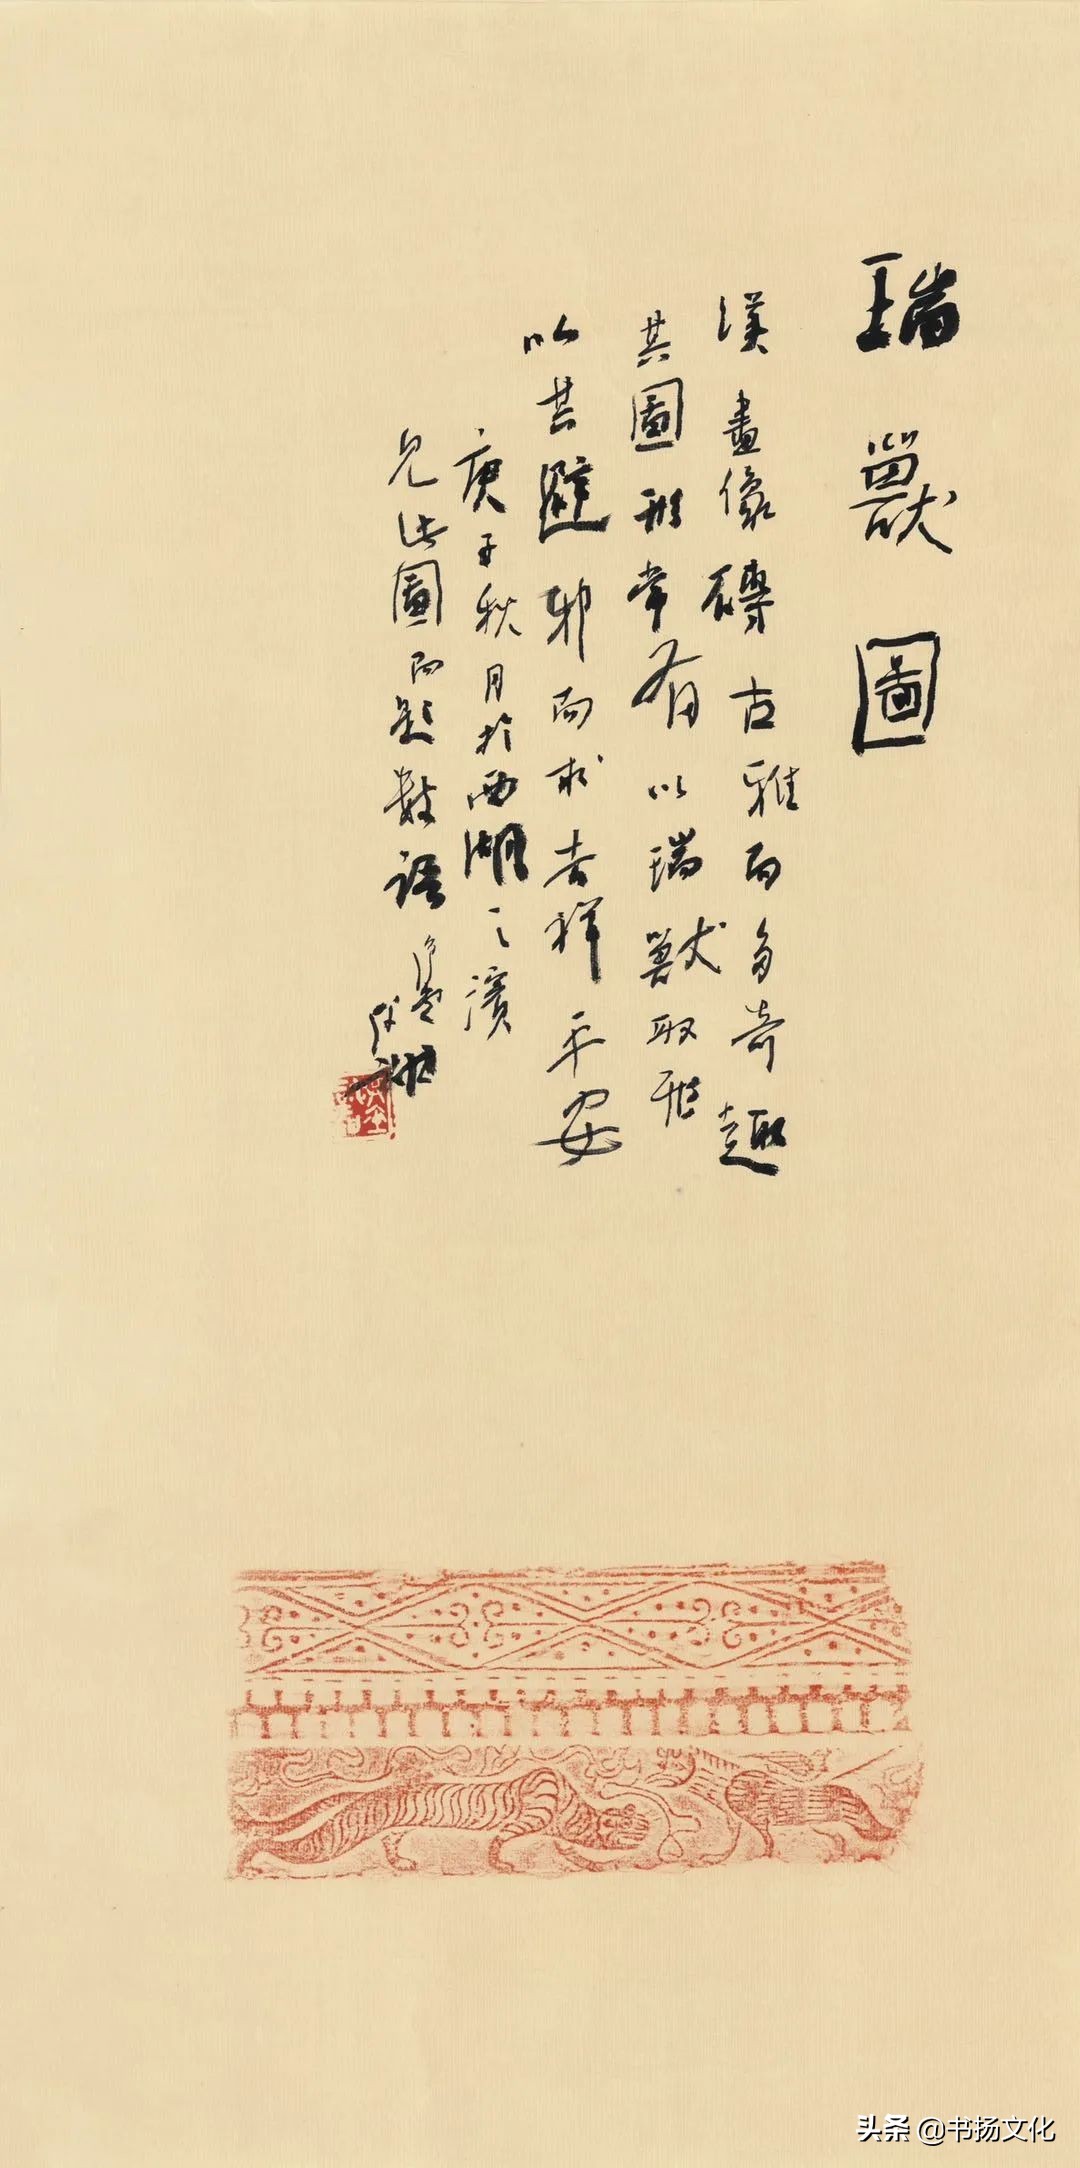 瑞獸圖
漢畫像磚古雅而多奇趣
其圖形常有以瑞獸取形
以其避邪而求吉祥平安
庚子秋月於西湖之濱
見此圖而題數語
头条 @书扬文化